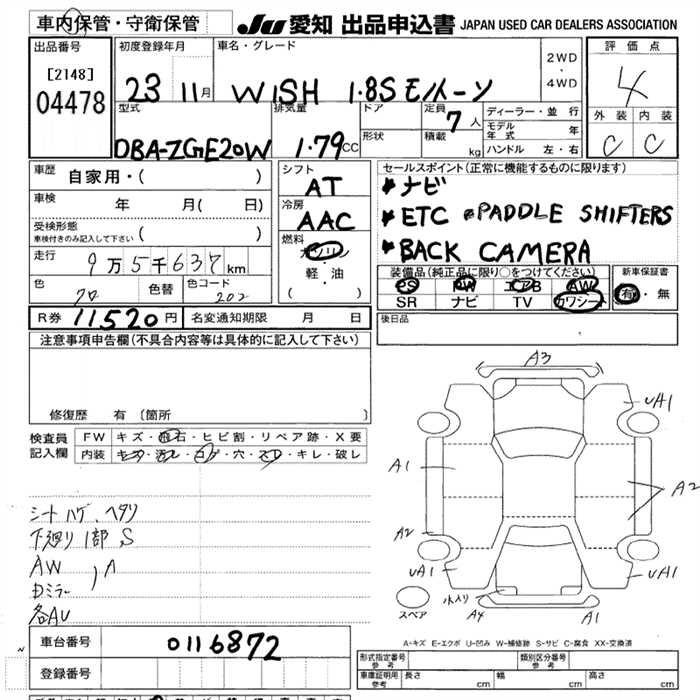 車内保管・守衛保管
JU 愛知 出品申込書 JAPAN USED CAR DEALERS ASSOCIATION
出品番号 初度登録年月 車名・グレード 評価点
[2148]
04478
23 11月 WISH 1.8S モノトーン
2WD
・
4WD
4
外装 内装
C C
型式 排気量 ドア 定員 7人 ディーラー・並行
形状 積載 kg モデル年式 年
ハンドル 左・右
DBA-ZGE20W 1.79CC
車歴 自家用・( )
シフト AT
セールスポイント(正常に機能するものに限ります)
ナビ
ETC PADDLE SHIFTERS
BACK CAMERA
車検 年 月( 日)
冷房 AAC
受検形態
車検付きのみ記入して下さい ( )
燃料 ガソリン
軽・油
( )
走行 9万5千637km
色 クロ 色替 色コード 202
装備品(純正品に限り○をつけてください) 新車保証書
PS PW エアB AW
SR ナビ TV カワシート
有・無
R券 11520円 名変通知期限 月 日
後日品
注意事項申告欄(不具合内容等は具体的に記入して下さい)
修復歴 有 〔箇所 〕
検査員記入欄
FW キズ・飛石・ヒビ割・リペア跡・X要
内装 キズ・汚レ・コゲ・穴・スレ・キレ・破レ
シートハゲ、ヘタリ
下廻り1部S
AW
Dミラー ) A
各AU
A3
UA1
A1
A2
A2
UA1
UA1
小入り
A4
A1
スペア
A-キズ E-エクボ U-凹み W-補修跡 S-サビ C-腐食 XX-交換済
車台番号 0116872
登録番号
形式指定番号 参考 類別区分番号 参考
車庫証明用 参考 長さ cm 幅 cm 高さ cm